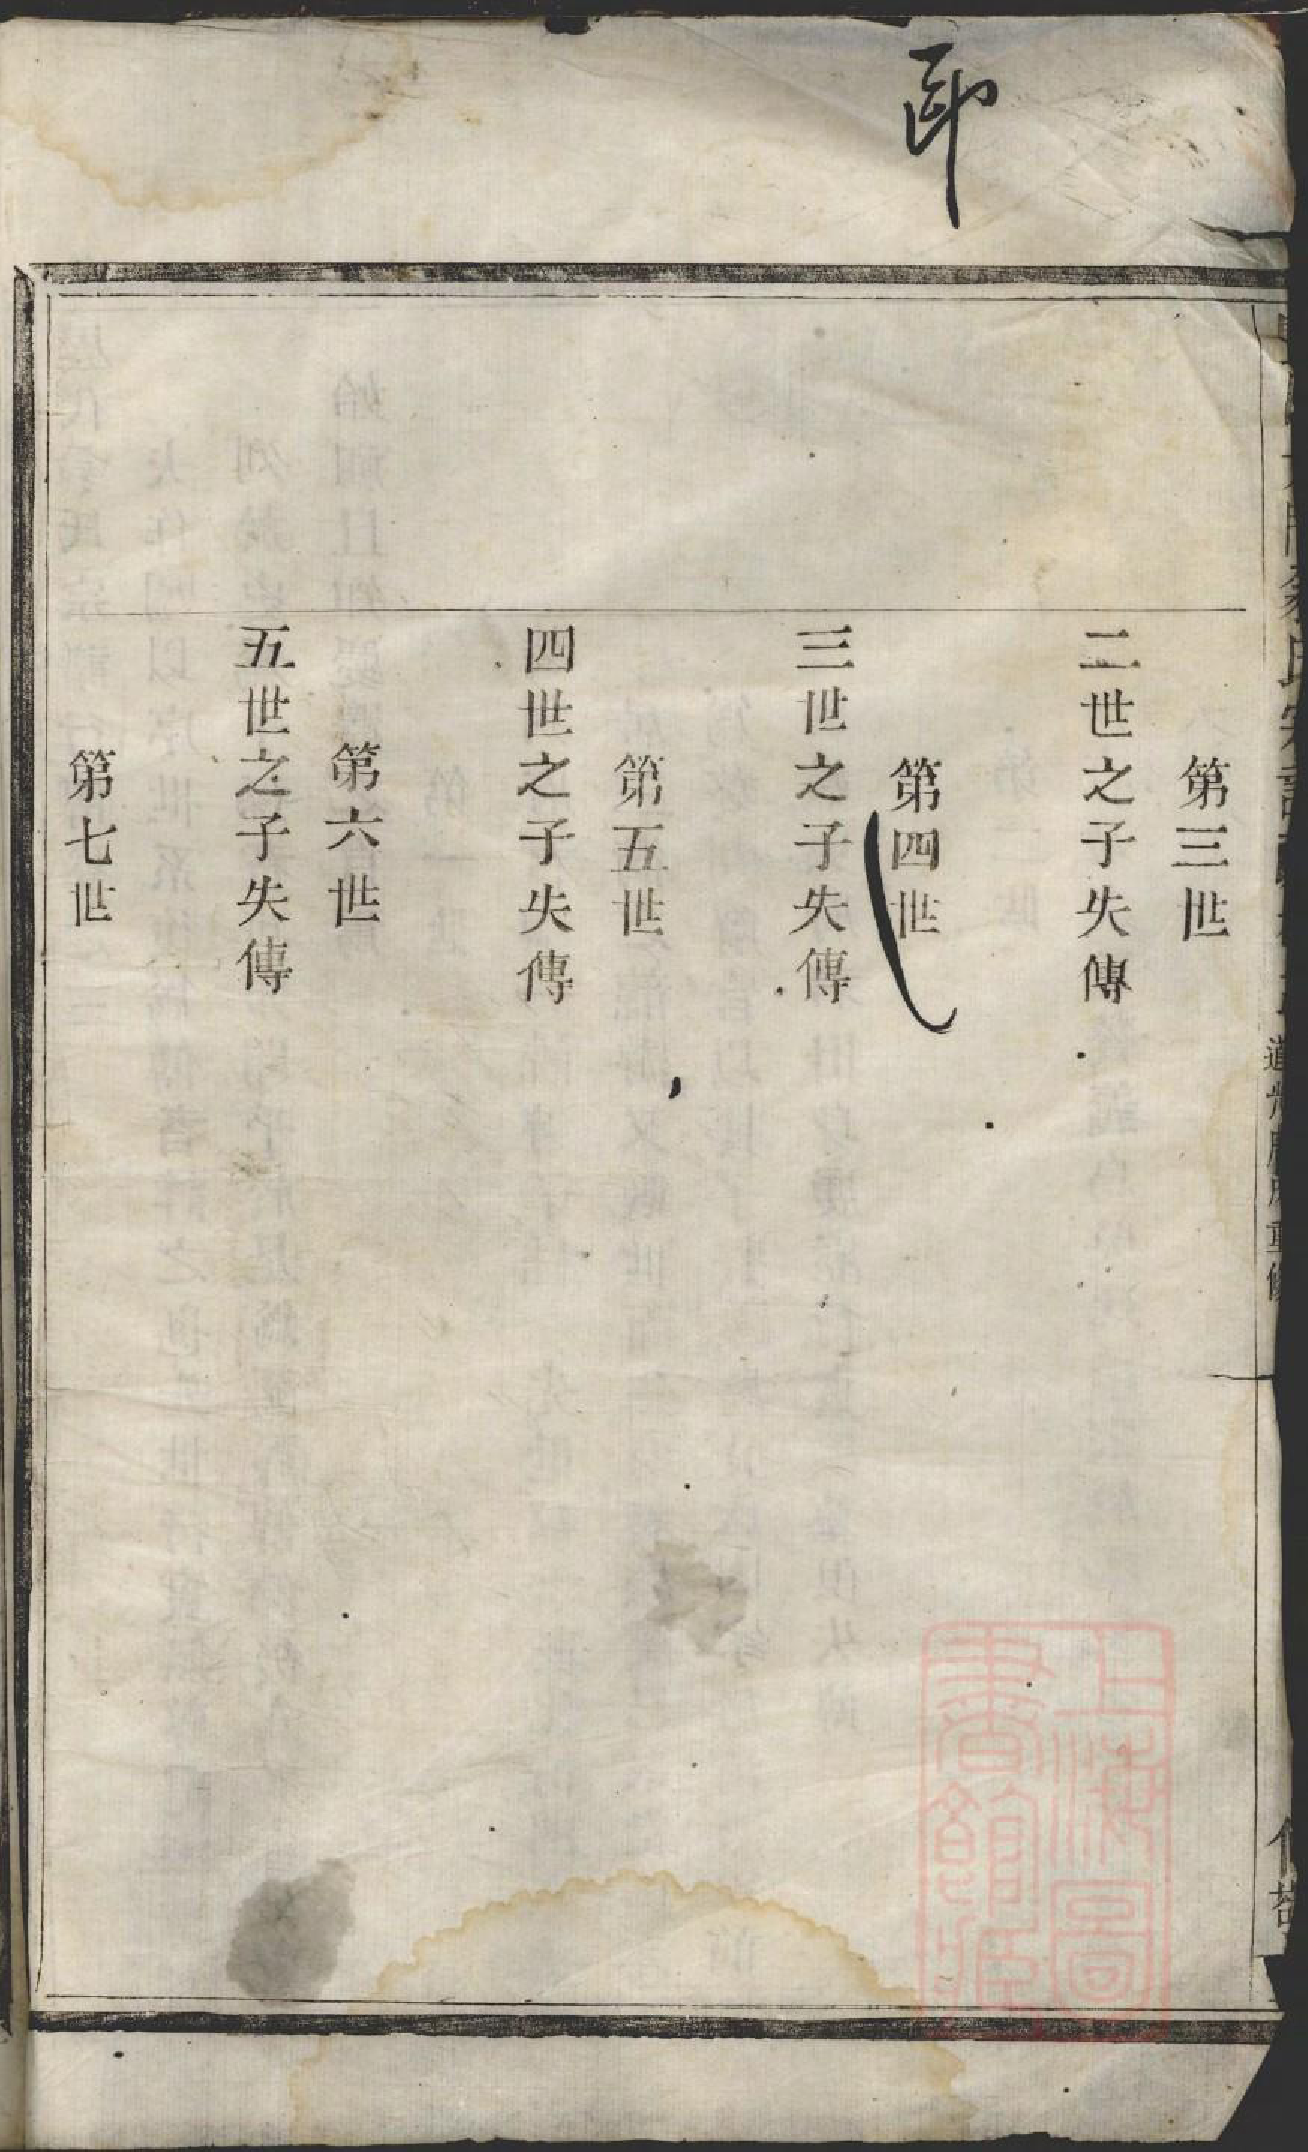 第三世
二世之子失傳
第四世
三世之子失傳
第五世
四世之子失傳
第六世
五世之子失傳
第七世
上海圖
書館藏